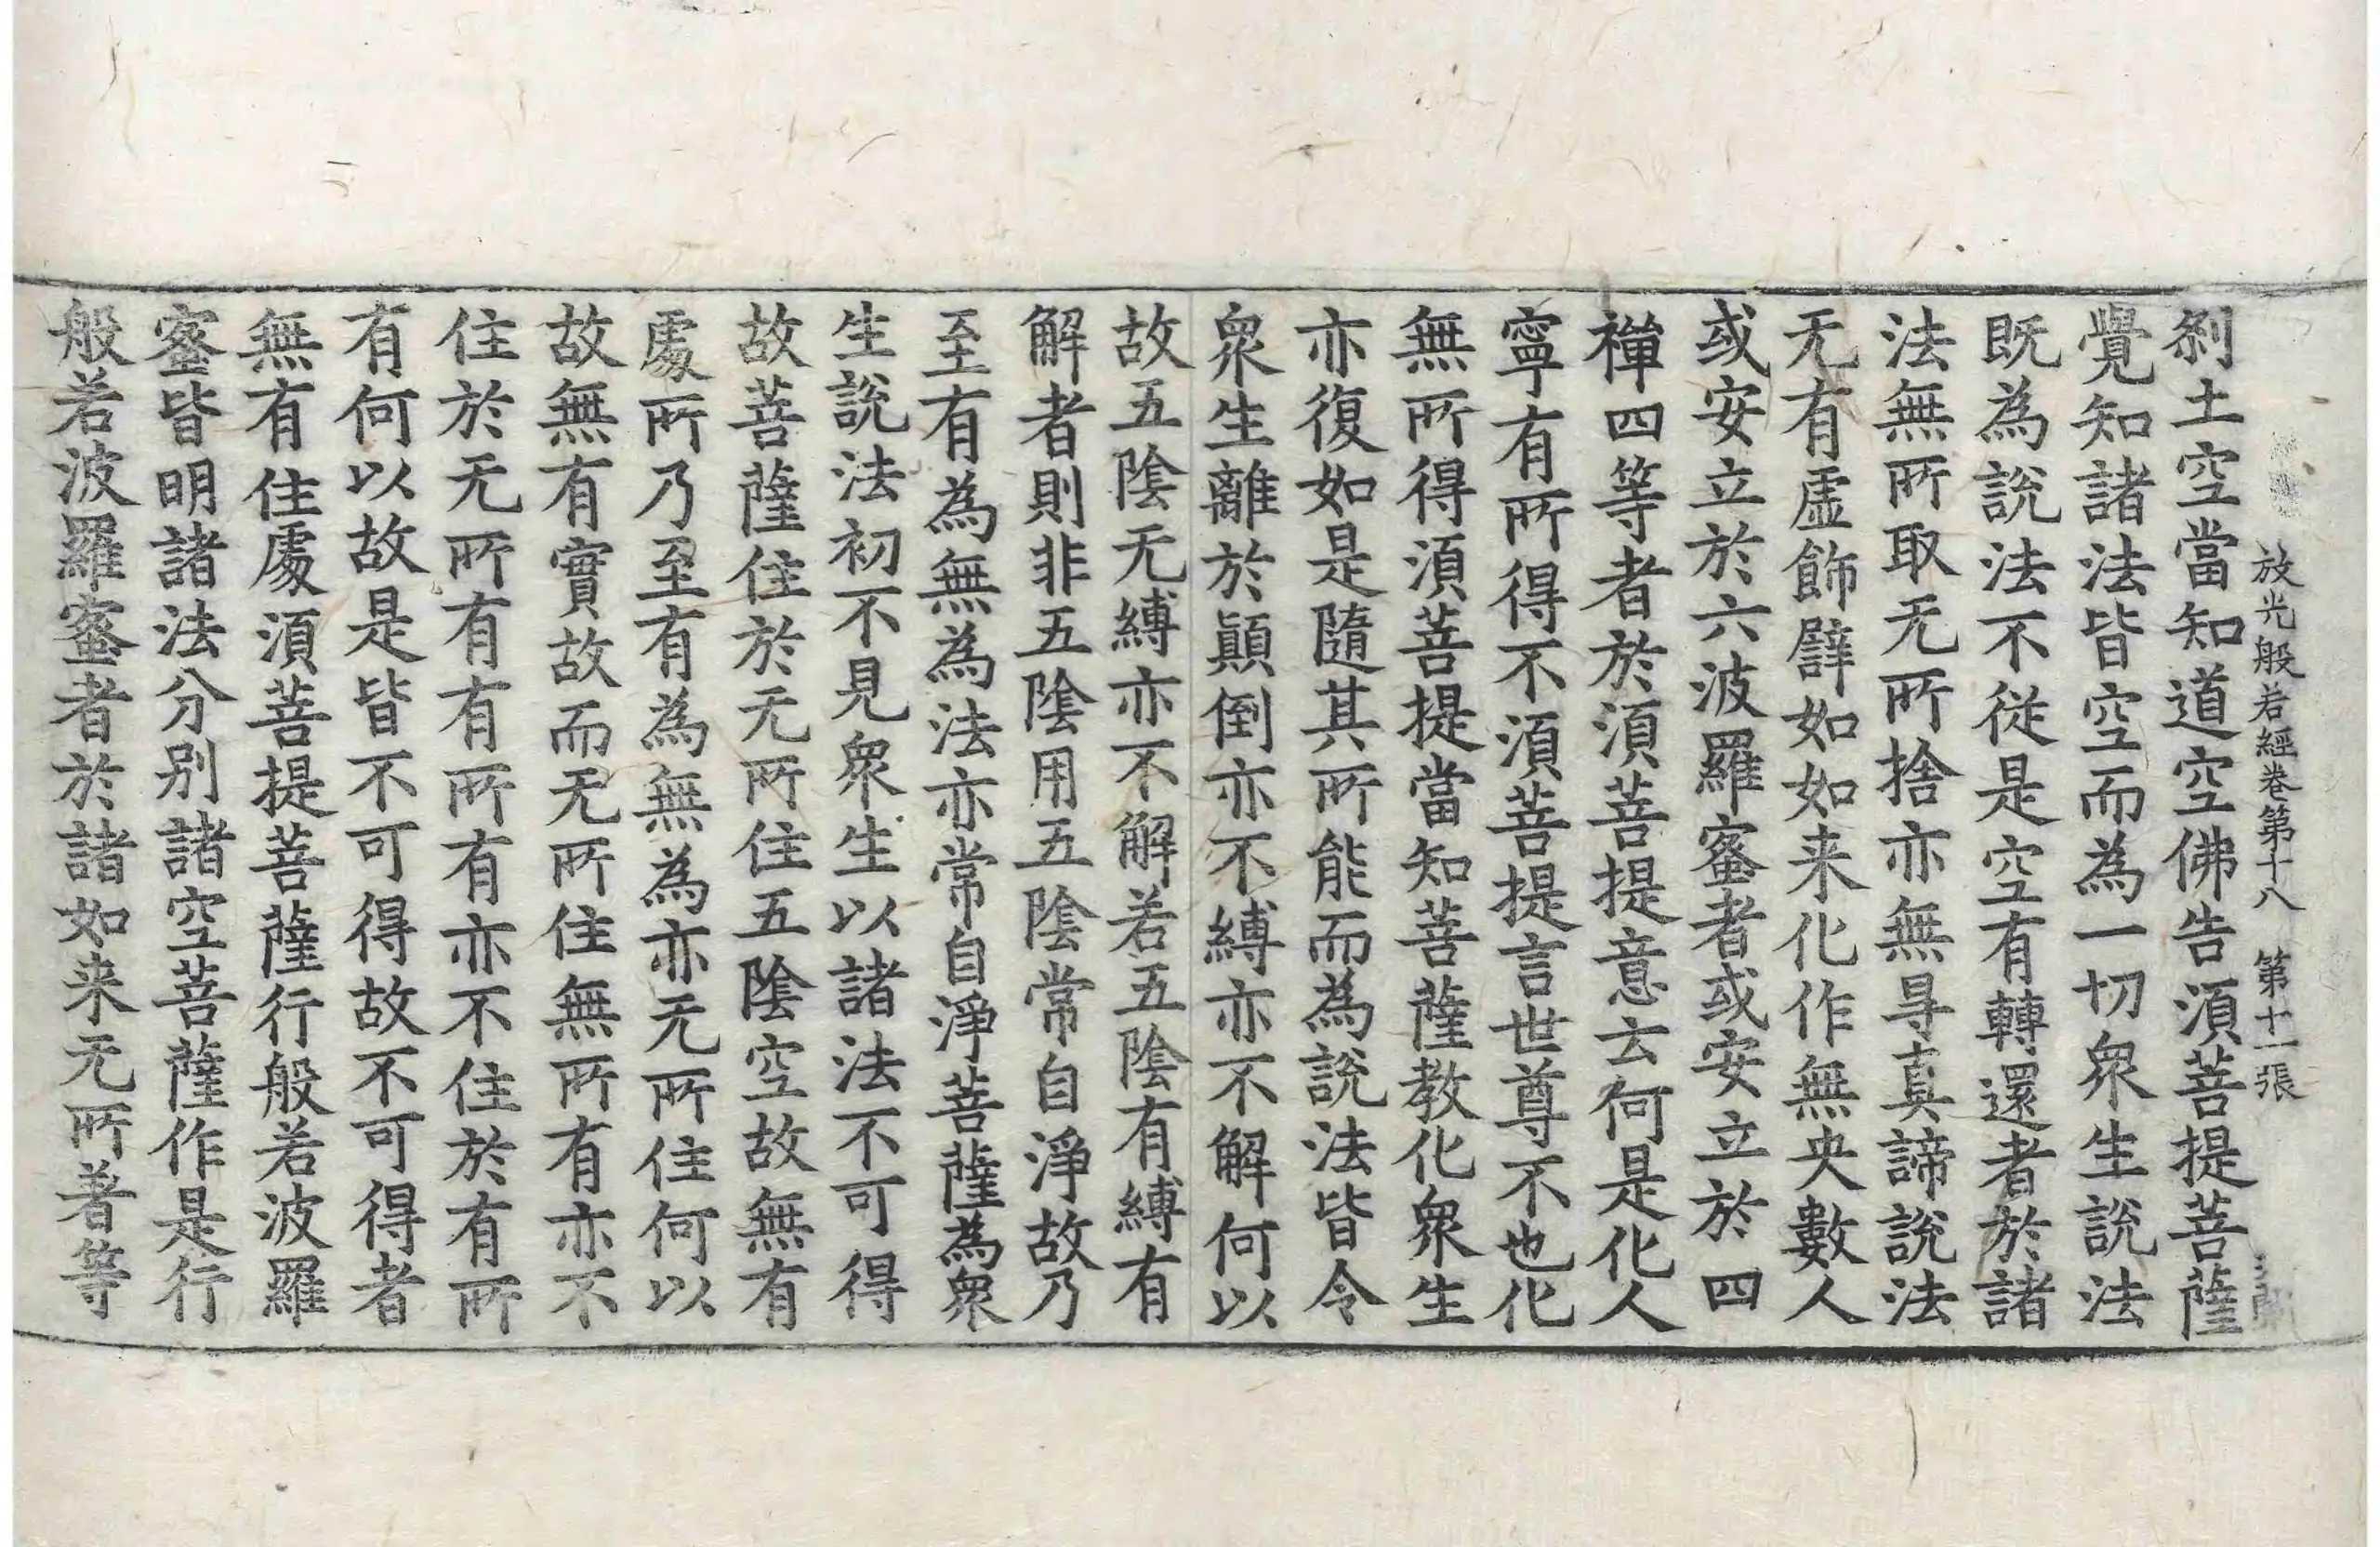 放光般若經卷第十八　第十一張
刹土空當知道空佛告湏菩提菩薩
覺知諸法皆空而為一切衆生說法
既為說法不從是空有轉還者於諸
法無所取无所捨亦無㝵真諦說法
无有虛飾譬如如来化作無央數人
或安立於六波羅蜜者或安立於四
禪四等者於湏菩提意云何是化人
寧有所得不湏菩提言世尊不也化
無所得湏菩提當知菩薩教化衆生
亦復如是隨其所能而為說法皆令
衆生離於顚倒亦不縛亦不解何以
故五陰无縛亦不解若五陰有縛有
解者則非五陰用五陰常自淨故乃
至有為無為法亦常自淨菩薩為衆
生說法初不見衆生以諸法不可得
故菩薩住於无所住五陰空故無有
處所乃至有為無為亦无所住何以
故無有實故而无所住無所有亦不
住於无所有有所有亦不住於有所
有何以故是皆不可得故不可得者
無有住處湏菩提菩薩行般若波羅
蜜皆明諸法分别諸空菩薩作是行
般若波羅蜜者於諸如来无所著等